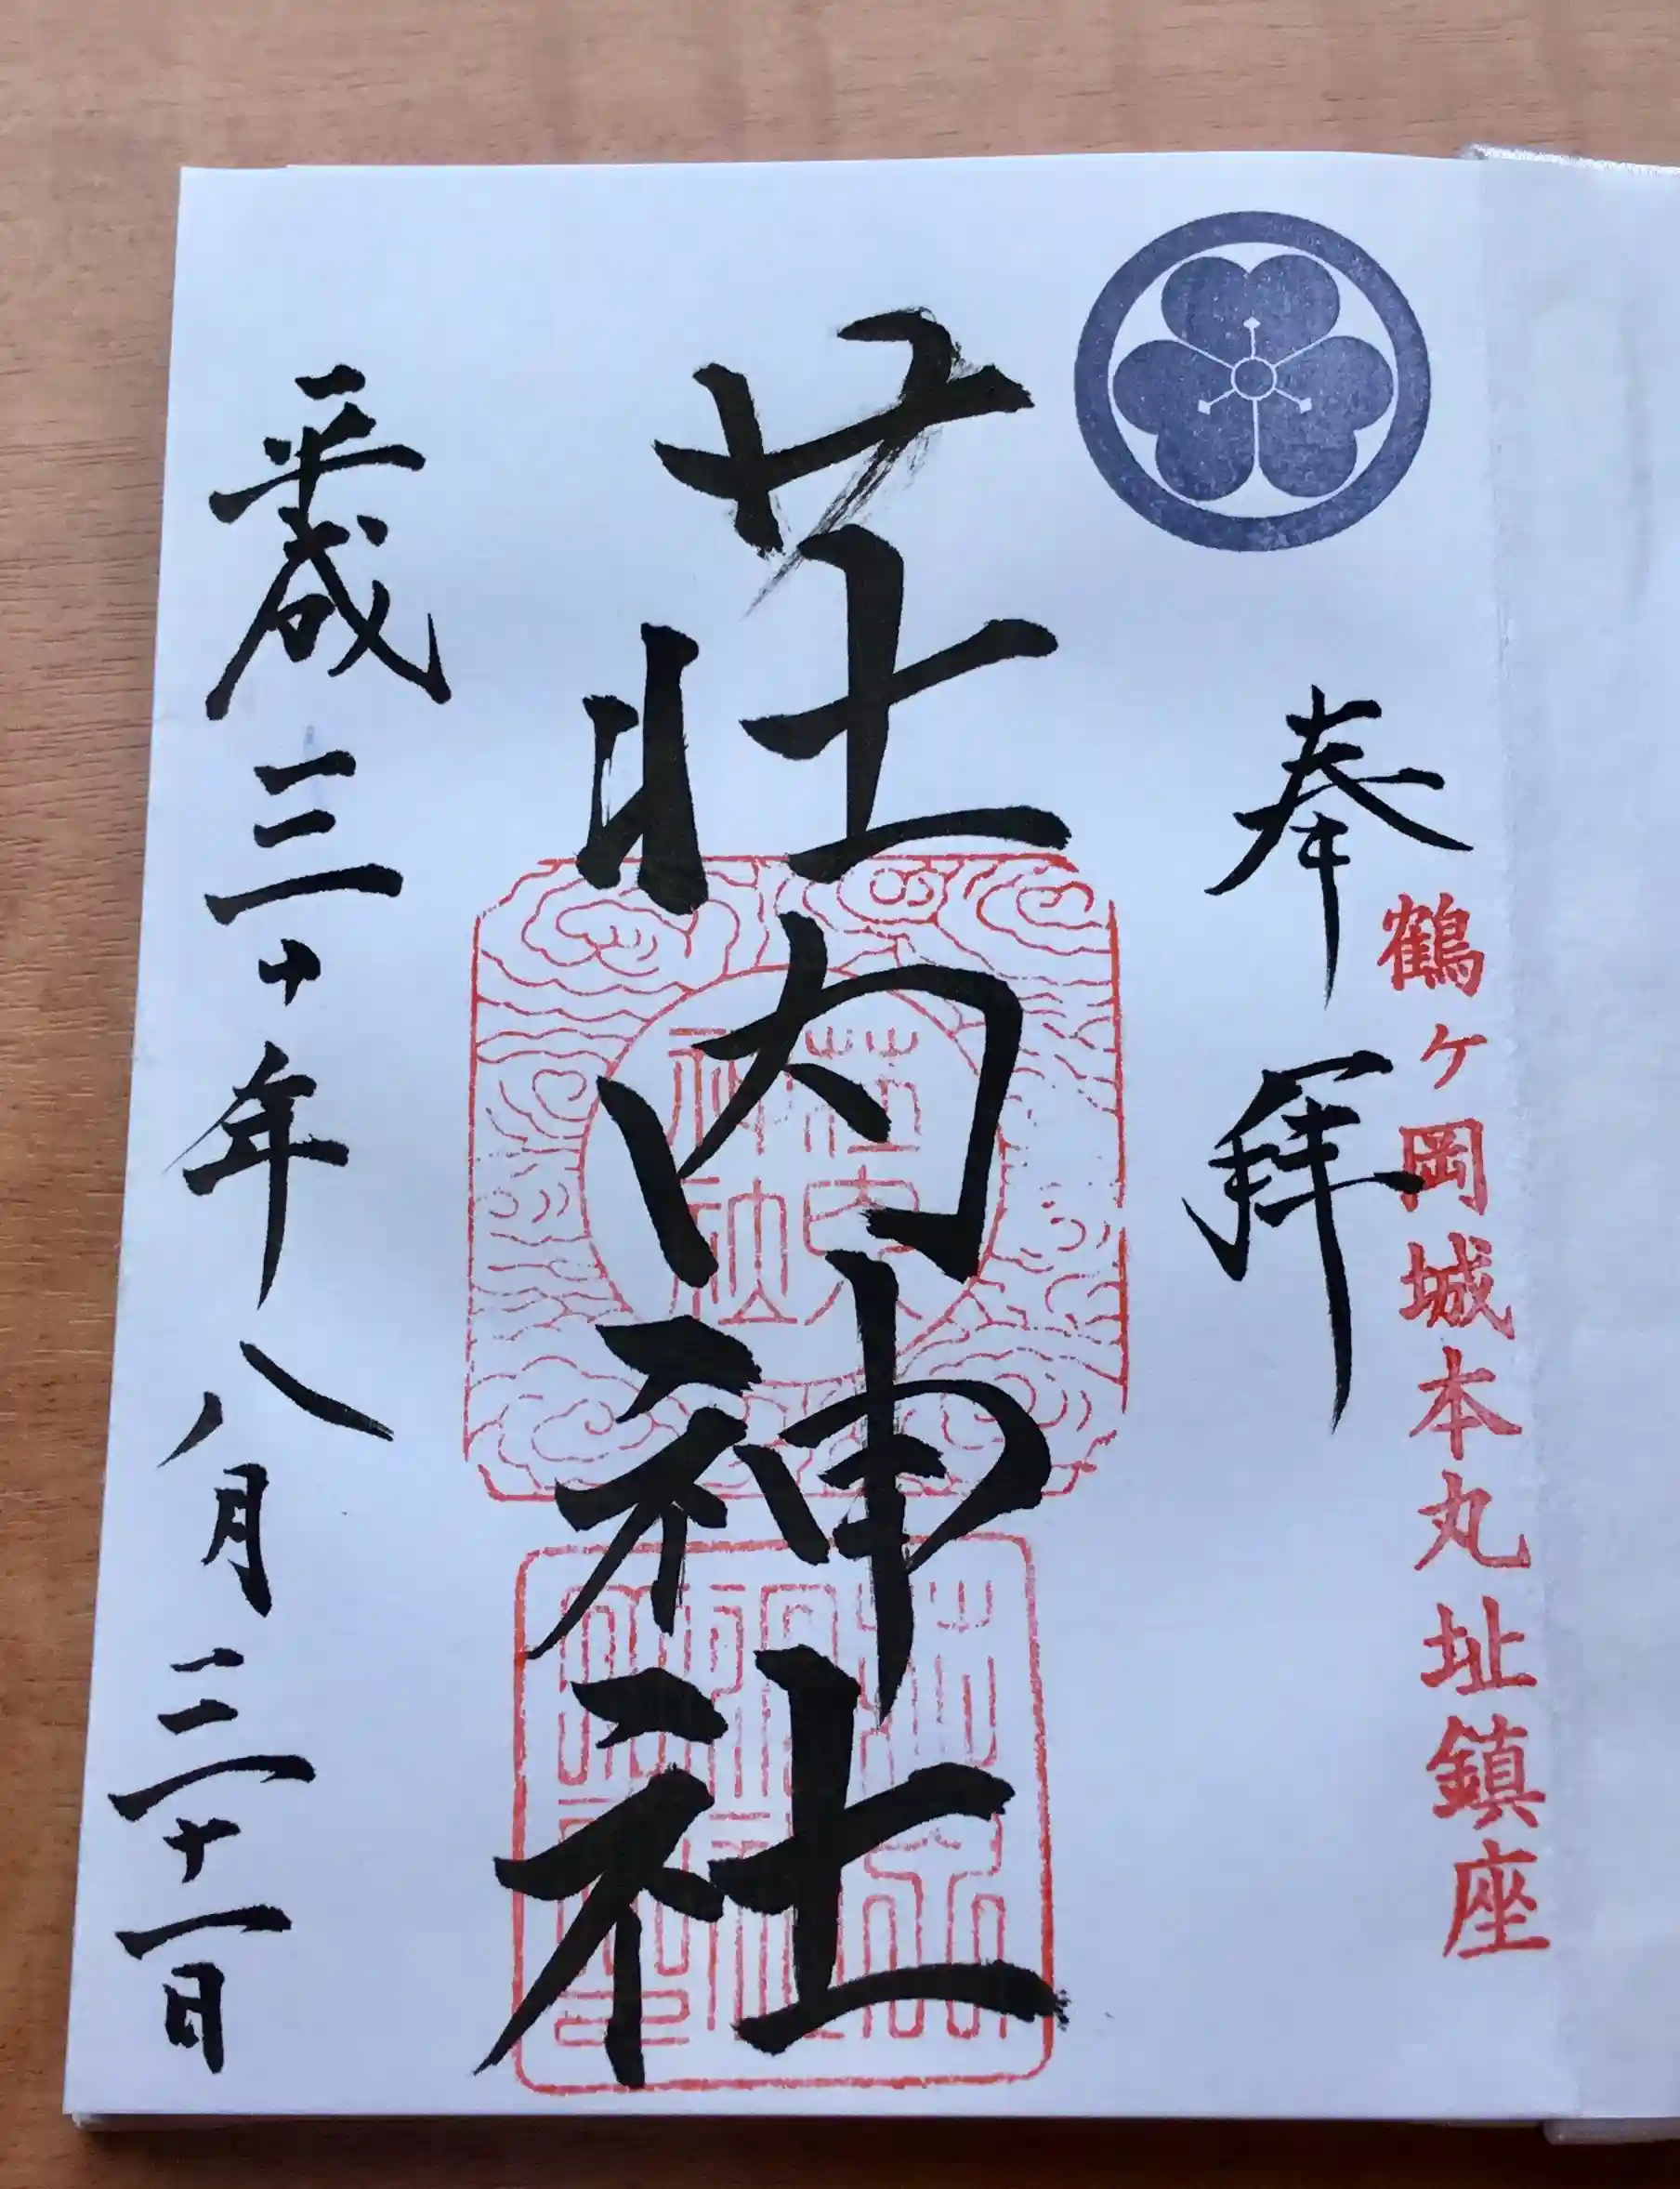 鶴ヶ岡城本丸址鎮座
奉拝
荘内神社
平成三十年八月三十一日
荘内神社